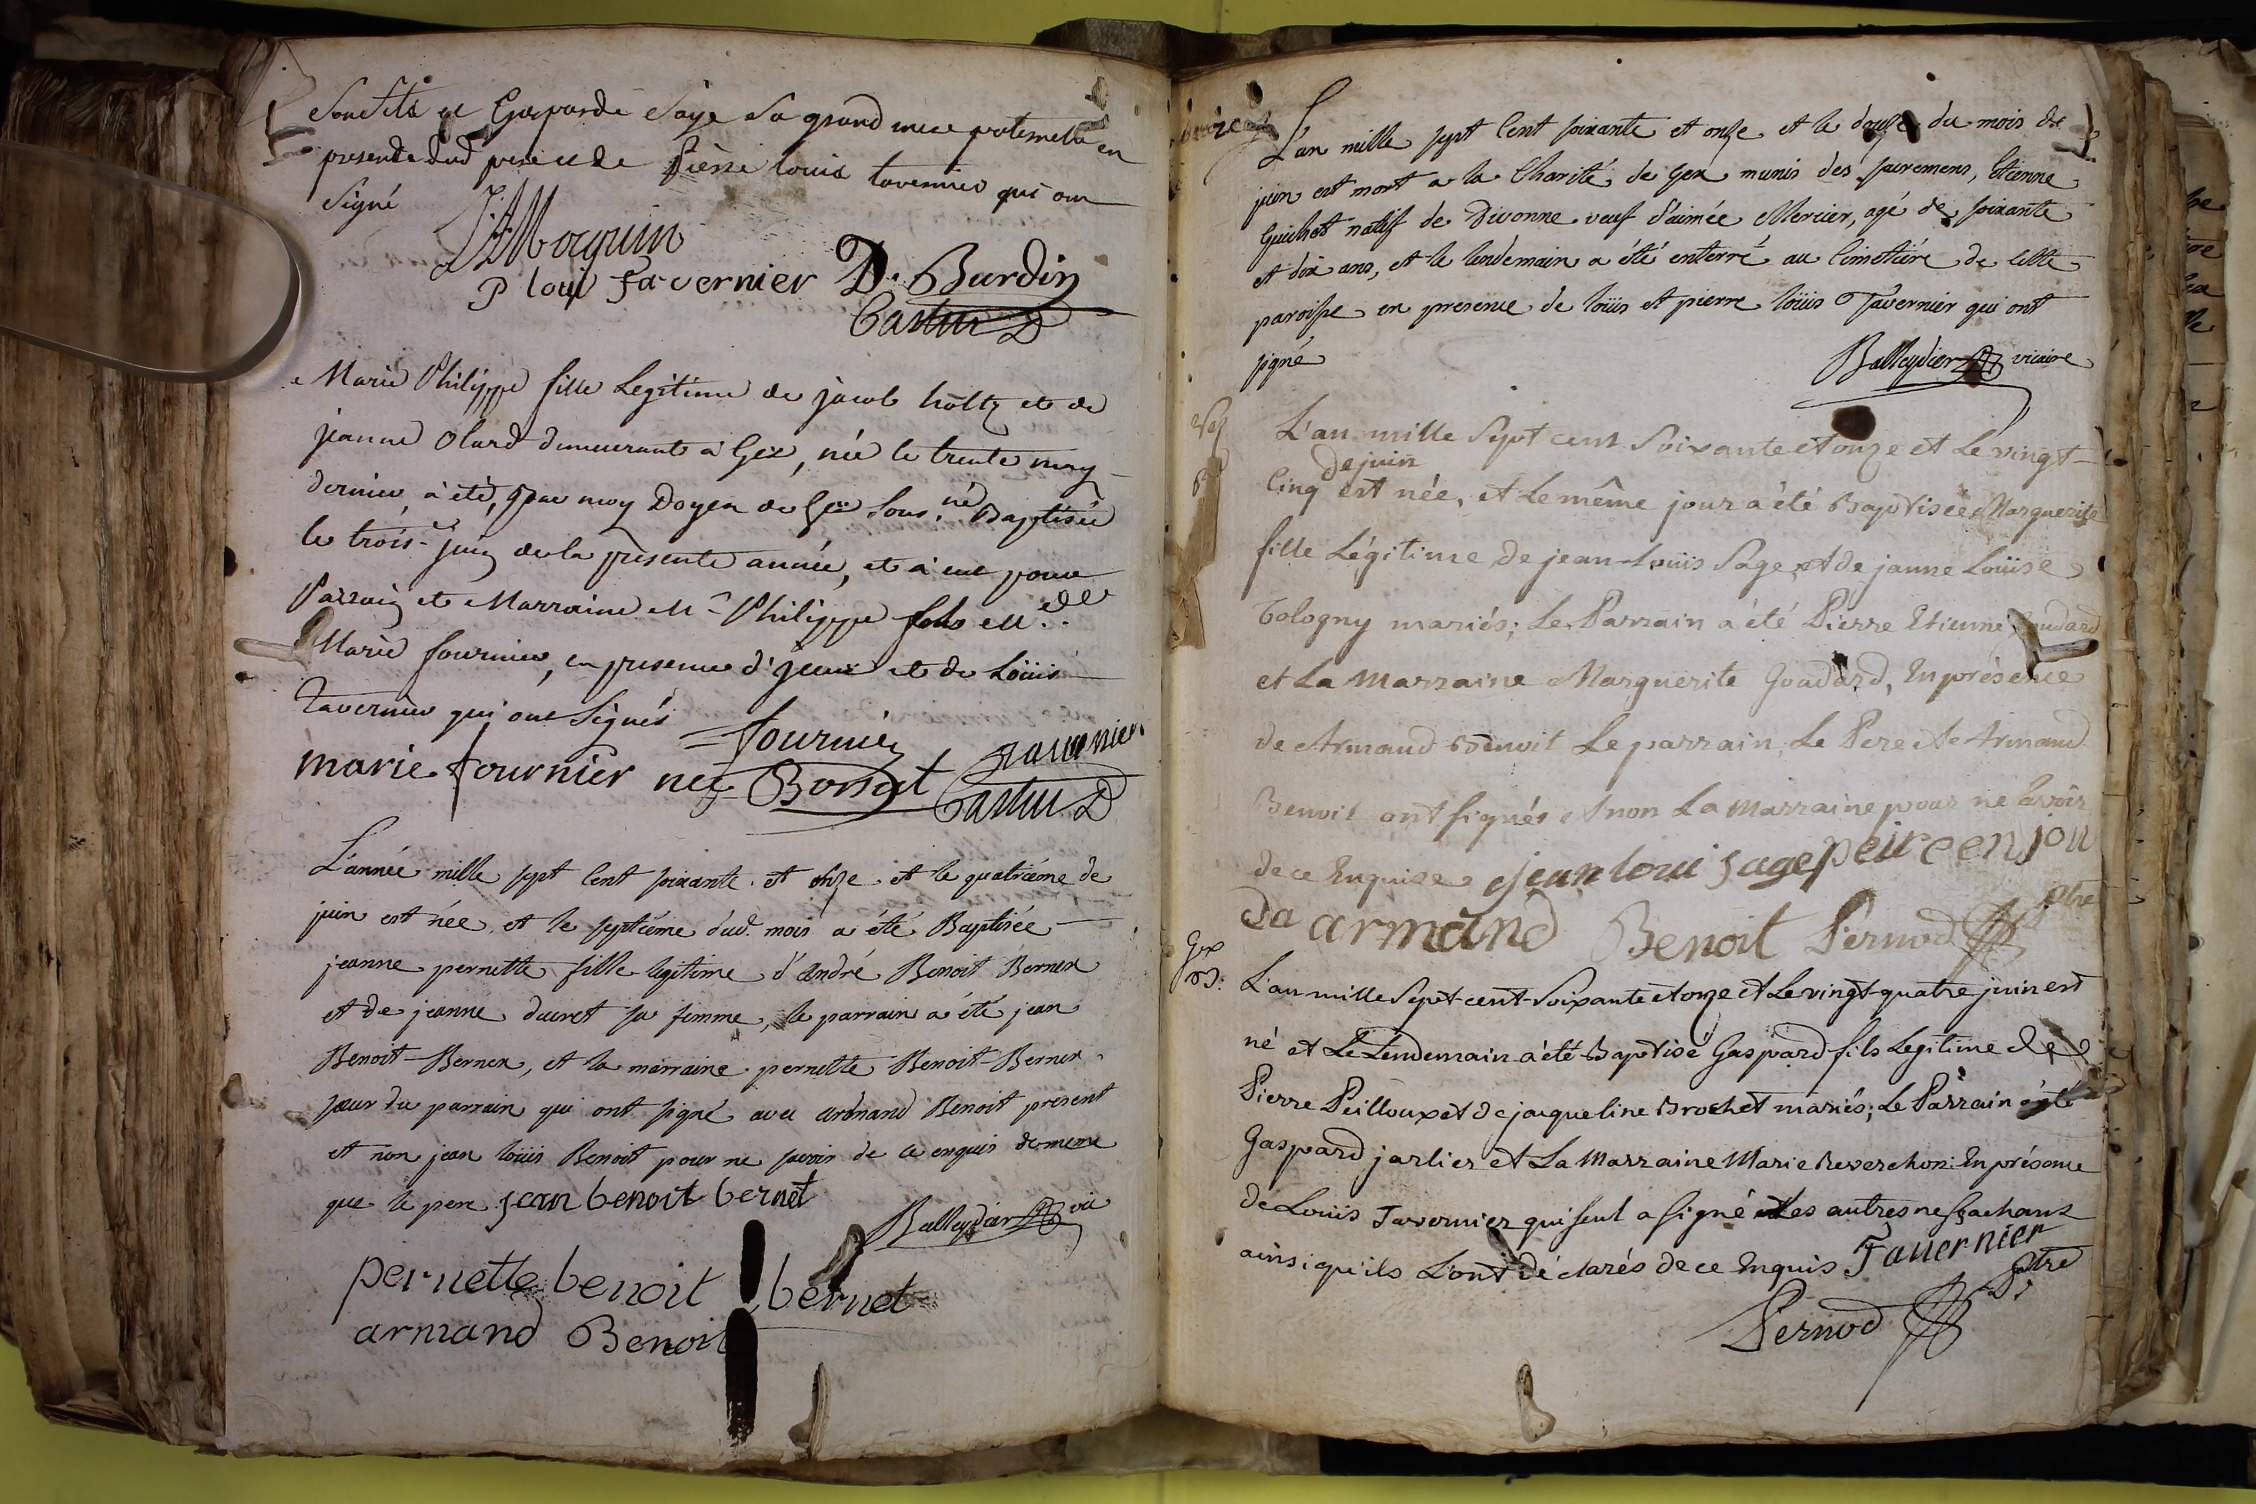 Son fils et Gasparde Saÿe Sa grand mere paternelle en
presence dud pere et de Pierre louis tavernier qui ont
Signé
JAMoquin
P louis Tavernier D. Burdin
Castin D
Marie Philippe fille Legitime de jacob holtz et de
jeanne Olard demeurants à Gex, née le trente may
dernier, à été, par moy Doyen de Gex Sous.né Baptisée
le trois juin de la presente année, et à eut pour
Parrain et Marraine Mr Philippe et Mdelle
Marie fournier, en presence d'jceux et de Loüis
Tavernier qui ont Signés
fournier
marie fournier née Bonnet Tavernier
Castin D
L'année mille sept cent soixante et onze et le quatrième de
juin est née, et le septième dud. mois a été Baptisée
jeanne pernette fille legitime d'andré Benoit Bernex
et de jeanne ducret sa femme, le parrain a été jean
Benoit-Bernex, et la marraine pernette Benoit-Bernex
sœur du parrain qui ont signé avec armand Benoit présent
et non jean loüis Benoit pour ne savoir de ce enquis de meme
que le pere jean benoit bernet
Balleydier vic
pernette benoit bernet
armand Benoit
L'an mille sept cent soixante et onze et le douze du mois de
juin est mort a la Charité de Gex munis des sacremens, Etienne
Guichet natif de Divonne veuf d'aimée Mercier, agé de soixante
et dix ans, et le lendemain a été enterré au Cimetière de cette
paroisse en presence de loüis et pierre loüis Tavernier qui ont
signé
Balleydier vicaire
L'an mille Sept cent Soixante et onze et Le vingt-
de juin
Cinq est née, et Le même jour a été Baptisée Marguerite
fille Légitime de jean-Loüis Sage et de janne Loüise
Cologny mariés; Le Parrain a été Pierre Etienne Goudard
et La Marraine Marguerite Goudard, En présence
de Armand Benoit Le parrain, Le Pere et Armand
Benoit ont signés et non La Marraine pour ne savoir
de ce Enquise jean loui sage peire en jou
da armand Benoit Pernod ptre
Gex
B. L'an mille Sept-cent-Soixante et onze et Le vingt-quatre juin est
né et Le Lendemain a été Baptisé Gaspard fils Legitime de
Pierre Peilloux et de jacqueline Brochet mariés; Le Parrain a été
Gaspard jarlier et La Marraine Marie Reverchon: En présence
de Loüis Tavernier qui seul a signé et Les autres ne sçachant
ainsi qu'ils L'ont déclarés de ce Enquis Tavernier
Pernod Ptre